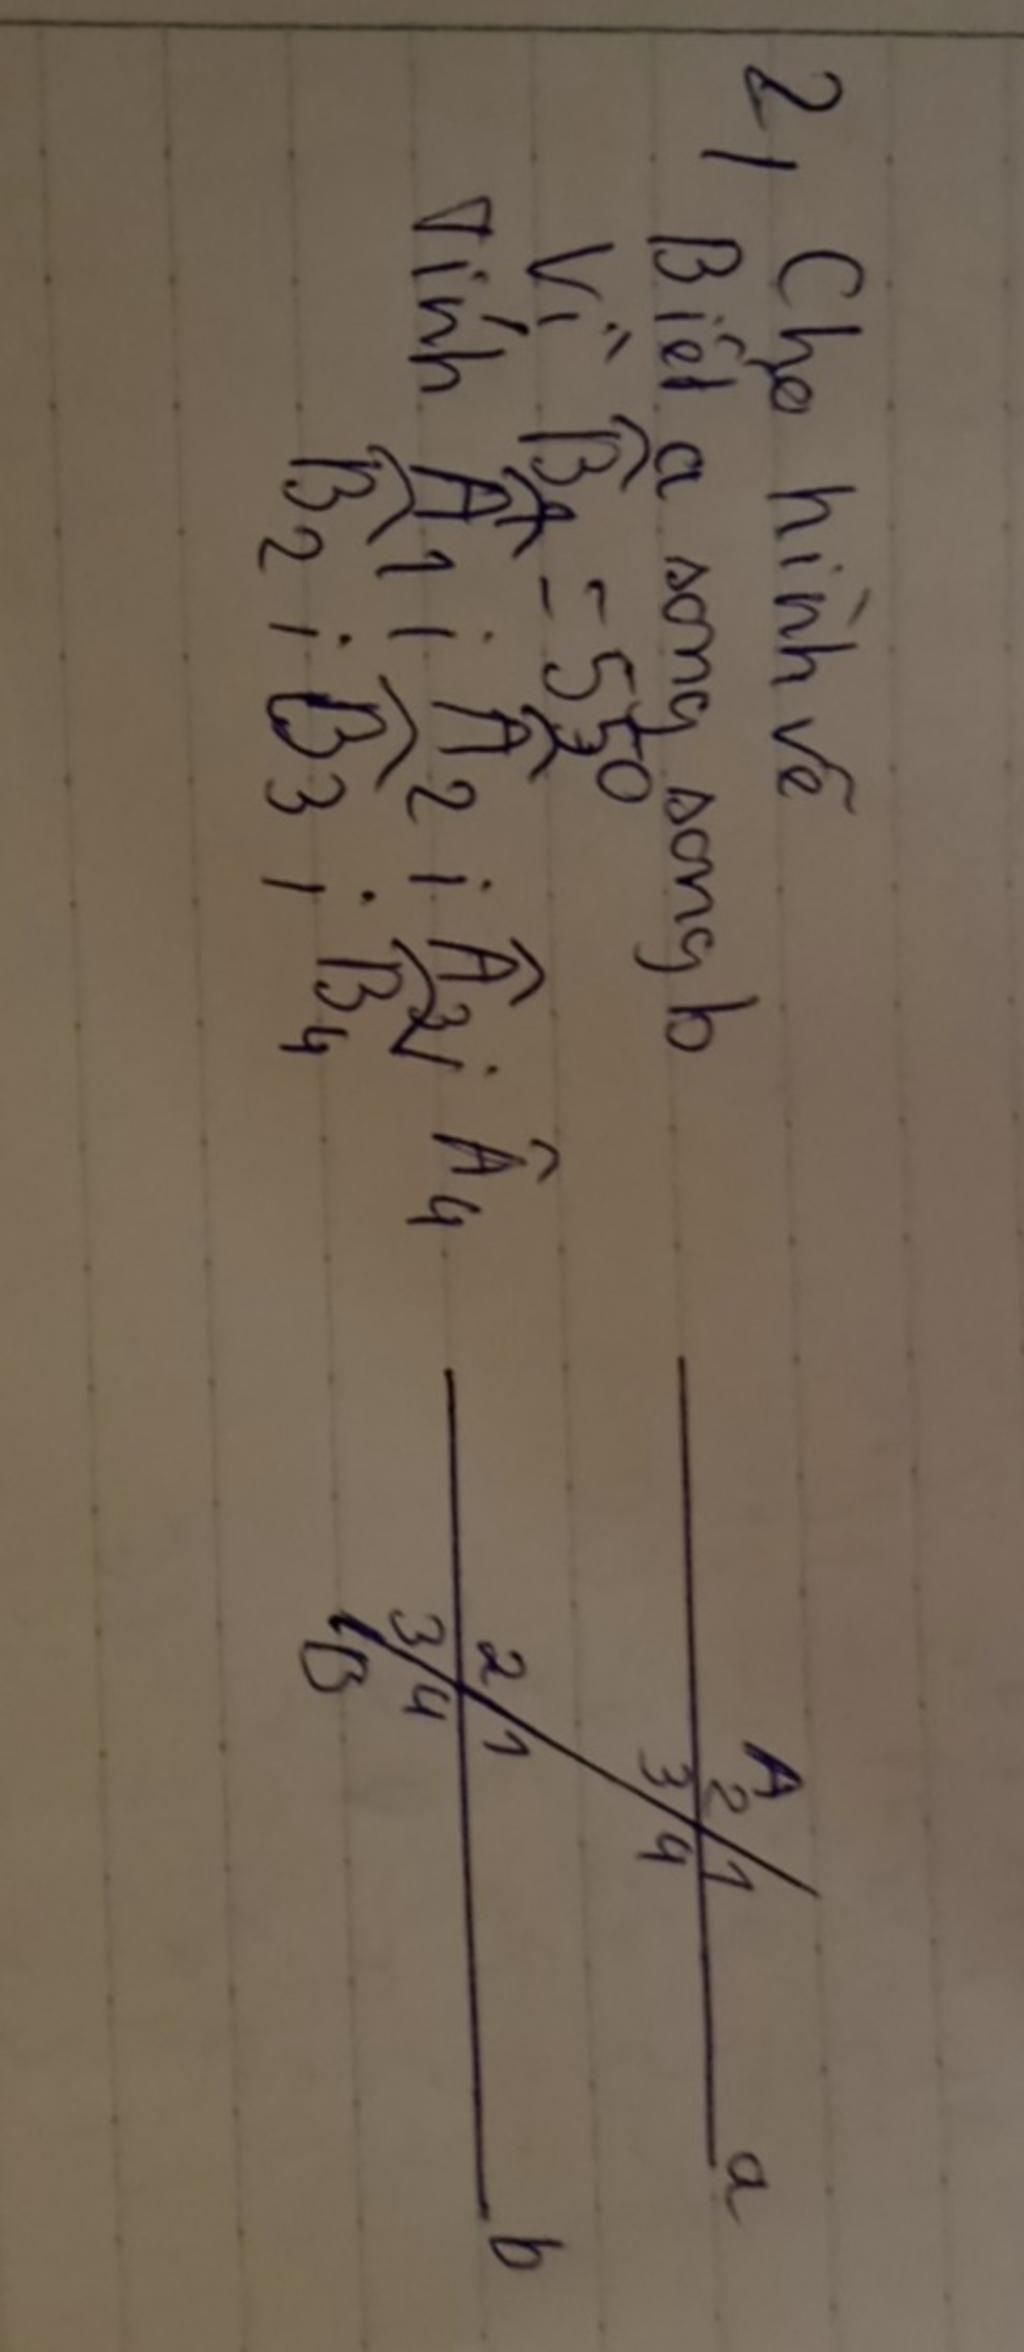 2, Cho hình vẽ
Biết a song song b
Vì B̂1 = 55°
Tính Â1 ; Â2 ; Â3 ; Â4
B̂2 ; B̂3 ; B̂4
A
2 1
a
3 4
2 1
b
3 4
B